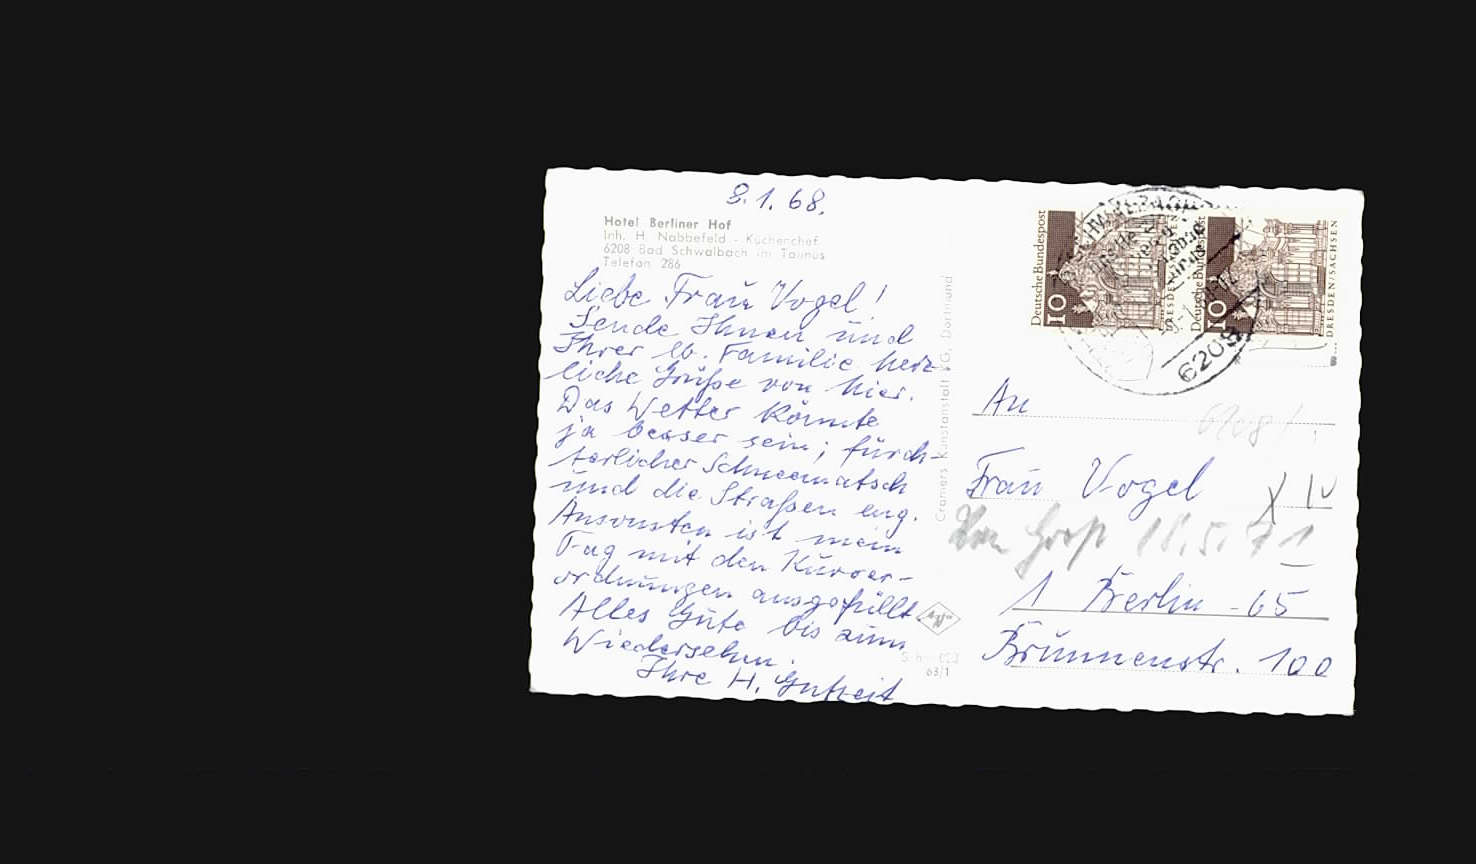 8.1.68.
Hotel Berliner Hof
Inh. H. Nabbefeld - Küchenchef
6208 Bad Schwalbach im Taunus
Telefon 286
Liebe Frau Vogel!
Sende Ihnen und
Ihrer lb. Familie herz-
liche Grüße von hier.
Das Wetter könnte
ja besser sein; fürch-
terlicher Schneematsch
und die Straßen eng.
Ansonsten ist mein
Tag mit den Kurver-
ordnungen ausgefüllt.
Alles Gute bis zum
Wiedersehen.
Ihre H. Gutzeit
Cramers Kunstanstalt KG, Dortmund
63/1
Deutsche Bundespost
10
DRESDEN/SACHSEN
Deutsche Bundespost
10
DRESDEN/SACHSEN
6208
An
Frau Vogel
18.5.71
1 Berlin - 65
Brunnenstr. 100